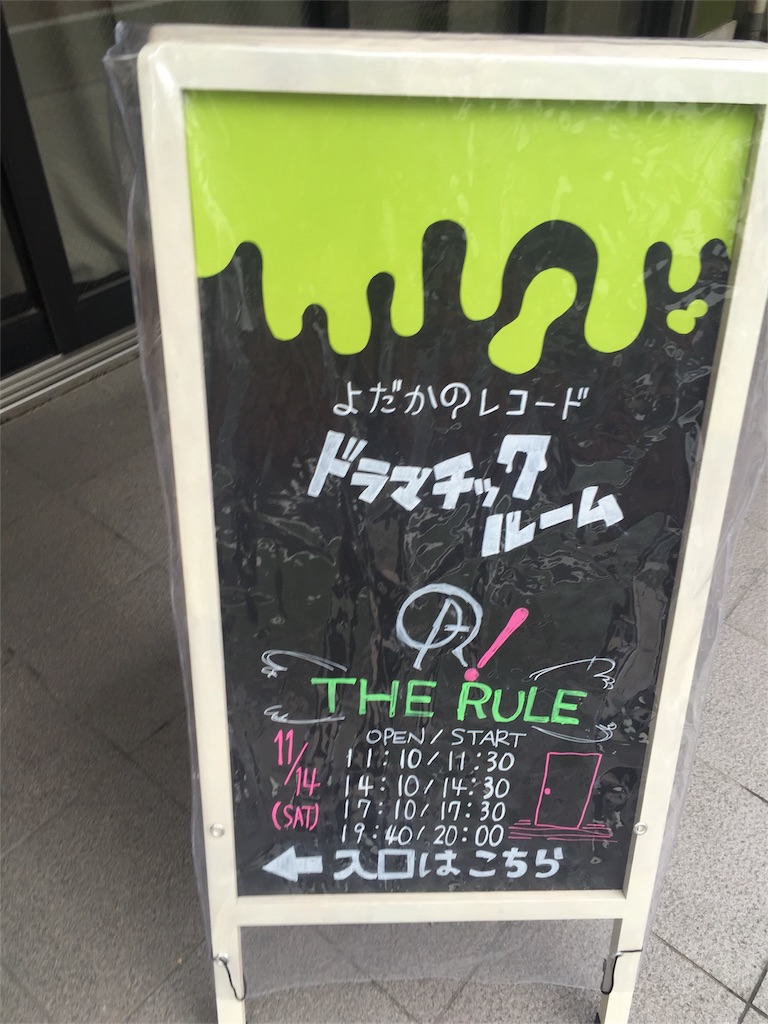 よだかのレコード
ドラマチック
ルーム
THE RULE
11/14
(SAT)
OPEN / START
11:10 / 11:30
14:10 / 14:30
17:10 / 17:30
19:40 / 20:00
← 入口はこちら